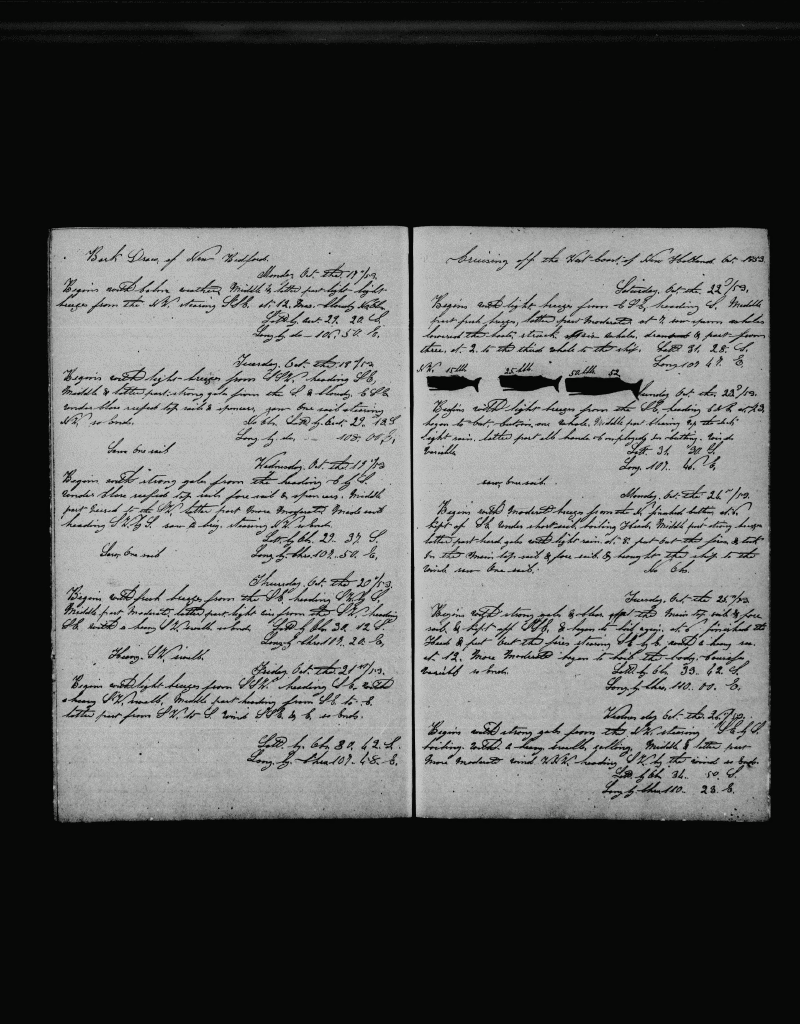 Bark Draco, of New Bedford.
Monday, Oct. the 17th/53,
Begins with calm weather, Middle & latter part light light
breezes from the N.W. steering SSE. at 12. Cloudy
Latt by 29. 20. S.
Long by do 106. 50. E.
Tuesday, Oct. the 18th/53
Begins with light breezes from SSW. heading SE,
Middle & latter part strong gale from the S & cloudy. ESE
under close reefed top sails & spencer, saw one sail steering
NW so Ends. No Ob. Latt by 29. 13 S
Long by do. 108. 00 E,
Saw One sail
Wednesday, Oct. the 19th/53
Begins with strong gale from the heading E by S.
under close reefed top sails fore sail & spencers. Middle
part to the SW. latter part More Moderate Made sail
heading SW by S. saw a brig. steering NW so Ends.
Latt by Ob. 29. 37. S.
Saw One sail Long by Chro. 107. 50. E,
Thursday, Oct. the 20th/53,
Begins with fresh breezes from the SE heading SW by S,
Middle part Moderate, latter part light airs from the SW, heading
SE with a heavy SW swell so ends. Latt by Ob. 30. 12 S.
Long by Chro 107. 20. E,
Heavy SW swell.
Friday, Oct. the 21st/53.
Begins with light breezes from SSW. heading S.E. with
a heavy SW swell, Middle part heading from SE to E.
latter part from SW to S wind SSE & E. so Ends.
Latt. by. Ob. 30. 42. S.
Long. by Chro 107. 48. E.
Cruising off the West Coast of New Holland Oct. 1853.
Saturday, Oct. the 22d/53,
Begins with light breezes from ESE, heading S. Middle
part fresh breezes, latter part Moderate, at 7. saw sperm whales
lowered the boats, struck whale, & part from
three. at. 2. to the third whale to the ship. Latt 31. 28. S.
Long 107 47. E
Sunday Oct. the 23d/53,
Begins with light breezes from the SE, heading ENE at 12.
began to cut. cut in one whale, Middle part cleaning up the deck
light rain. latter part all hands employed in cutting. wind
variable Latt. 31. 30 S.
Long. 107. 46. E,
saw, One sail.
Monday, Oct. the 24th/53,
Begins with Moderate breezes from the N, finished cutting at 4.
kept off SE under short sail, boiling Head, Middle part strong breezes
latter part hard gale with light rain. at. 8. put out the fires, & took
in the Main top sail & fore sail, & brought the ship to the
wind saw One sail. No Ob.
Tuesday, Oct. the 25th/53
Begins with strong gale & the Main top sail & fore
sail, & kept off & began to boil again. at. 6 finished the
Head & put Out the fires steering SE by E with a heavy sea
at. 12. More Moderate began to boil the body. Courses
variable so Ends. Latt by Ob. 33. 42. S.
Long by chro, 110. 00. E.
Wednesday Oct. the 26th/53,
Begins with strong gale from the NW steering SE by S.
boiling with a heavy swell, Middle & latter part
More Moderate wind heading SW by the wind so Ends.
Latt by Ob 34. 50. S.
Long by Chro 110. 23. E.